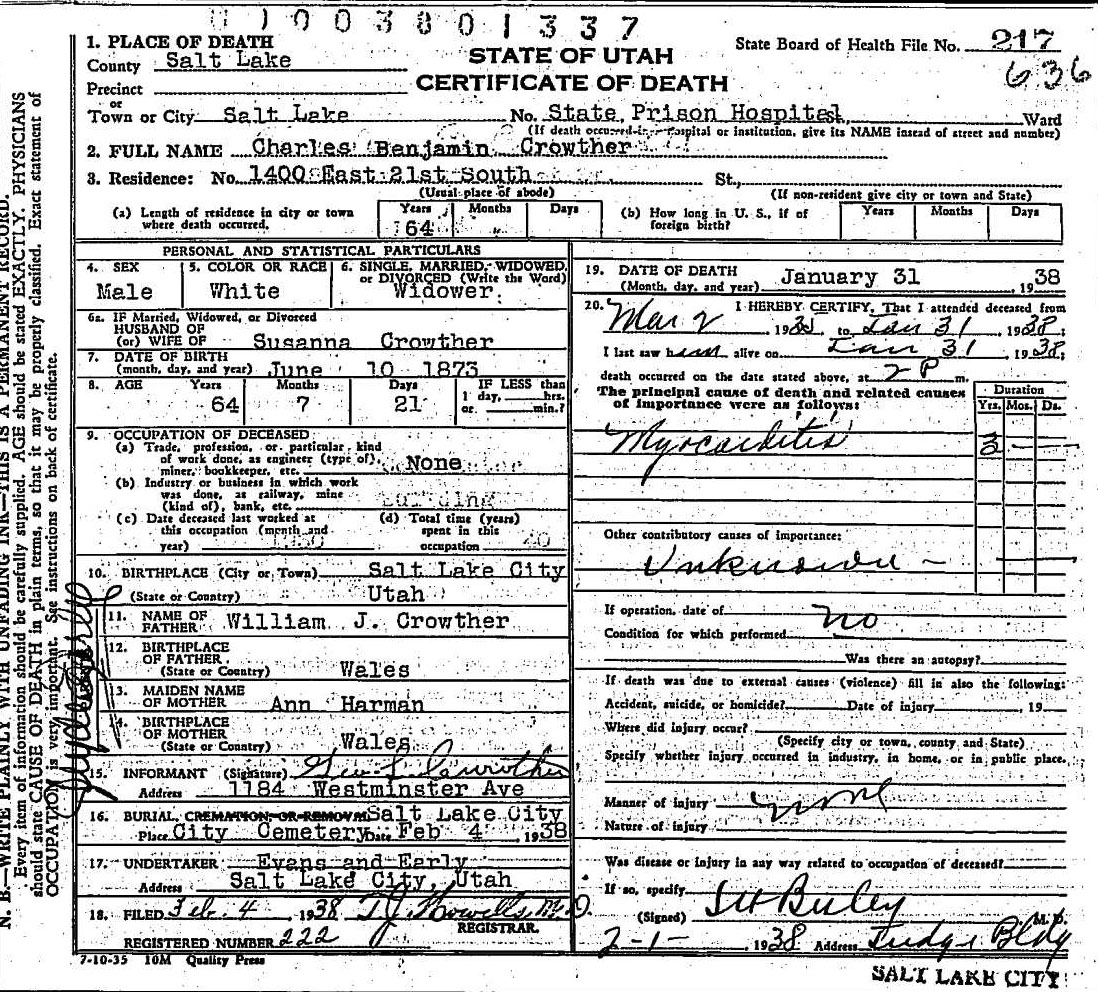 1003801337
1. PLACE OF DEATH
County Salt Lake
STATE OF UTAH
CERTIFICATE OF DEATH
State Board of Health File No. 217
636
Precinct
or
Town or City Salt Lake No. State Prison Hospital St., Ward
(If death occurred in a hospital or institution, give its NAME instead of street and number)
2. FULL NAME Charles Benjamin Crowther
3. Residence: No. 1400 East 21st South St.,
(Usual place of abode) (If non-resident give city or town and State)
(a) Length of residence in city or town where death occurred. Years 64 Months " Days
(b) How long in U. S., if of foreign birth? Years Months Days
PERSONAL AND STATISTICAL PARTICULARS
4. SEX Male
5. COLOR OR RACE White
6. SINGLE, MARRIED, WIDOWED, or DIVORCED (Write the Word) Widower
6a. IF Married, Widowed, or Divorced
HUSBAND OF
(or) WIFE OF Susanna Crowther
7. DATE OF BIRTH
(month, day, and year) June 10 1873
8. AGE Years 64 Months 7 Days 21 IF LESS than 1 day, hrs. or min.?
9. OCCUPATION OF DECEASED
(a) Trade, profession, or particular kind
of work done, as engineer (type of),
miner, bookkeeper, etc. None
(b) Industry or business in which work
was done, as railway, mine
(kind of), bank, etc.
(c) Date deceased last worked at
this occupation (month and
year)
(d) Total time (years)
spent in this
occupation
10. BIRTHPLACE (City or Town) Salt Lake City
(State or Country) Utah
11. NAME OF FATHER William J. Crowther
12. BIRTHPLACE
OF FATHER
(State or Country) Wales
13. MAIDEN NAME
OF MOTHER Ann Harman
14. BIRTHPLACE
OF MOTHER
(State or Country) Wales
15. INFORMANT (Signature) Geo L Crowther
Address 1184 Westminster Ave
16. BURIAL, CREMATION, OR REMOVAL Salt Lake City
Place City Cemetery Date Feb 4, 1938
17. UNDERTAKER Evans and Early
Address Salt Lake City, Utah
18. FILED Feb. 4, 1938 T.J. Howells, M.D.
REGISTRAR.
REGISTERED NUMBER 222
7-10-35 10M Quality Press
19. DATE OF DEATH January 31 1938
(Month, day, and year)
20. I HEREBY CERTIFY, That I attended deceased from
Mar 2 193 to Jan 31, 1938;
I last saw him alive on Jan 31, 1938;
death occurred on the date stated above, at 2 P m.
The principal cause of death and related causes
of importance were as follows:
Duration
Yrs. Mos. Ds.
Myocarditis 3 — —
Other contributory causes of importance:
Unknown —
If operation, date of no
Condition for which performed
Was there an autopsy?
If death was due to external causes (violence) fill in also the following:
Accident, suicide, or homicide? Date of injury, 19
Where did injury occur?
(Specify city or town, county and State)
Specify whether injury occurred in industry, in home, or in public place.
Manner of injury none
Nature of injury
Was disease or injury in any way related to occupation of deceased?
If so, specify
(Signed) M. D.
2-1-, 1938 Address Judge Bldg
SALT LAKE CITY
N. B.—WRITE PLAINLY WITH UNFADING INK—THIS IS A PERMANENT RECORD.
Every item of information should be carefully supplied. AGE should be stated EXACTLY. PHYSICIANS
should state CAUSE OF DEATH in plain terms, so that it may be properly classified. Exact statement of
OCCUPATION is very important. See instructions on back of certificate.